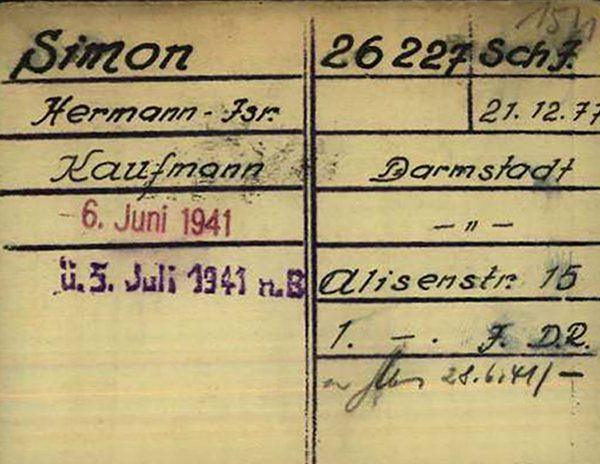 1511
Simon
26 227 Sch J.
Hermann - Isr.
21. 12. 77
Kaufmann
Darmstadt
- 6. Juni 1941
— " —
ü. 5. Juli 1941 n.B
Alisenstr. 15
1. — . J. D.R.
28.6.41/—